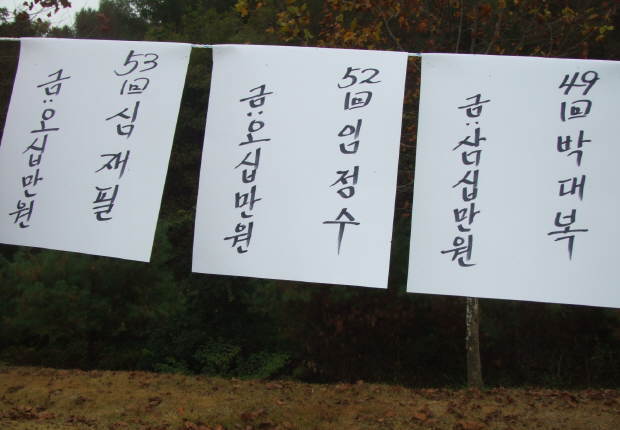 53回 심재필
금:오십만원
52回 임정수
금:오십만원
49回 박대복
금:삼십만원